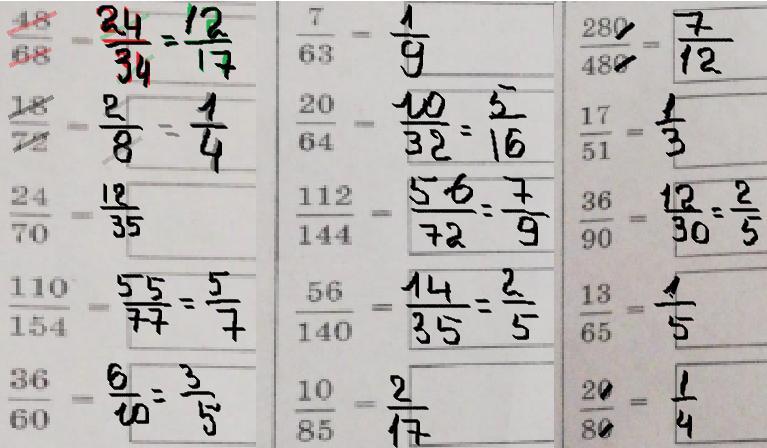 48/68 = 24/34 = 12/17
18/72 = 2/8 = 1/4
24/70 = 12/35
110/154 = 55/77 = 5/7
36/60 = 6/10 = 3/5
7/63 = 1/9
20/64 = 10/32 = 5/16
112/144 = 56/72 = 7/9
56/140 = 14/35 = 2/5
10/85 = 2/17
280/480 = 7/12
17/51 = 1/3
36/90 = 12/30 = 2/5
13/65 = 1/5
20/80 = 1/4